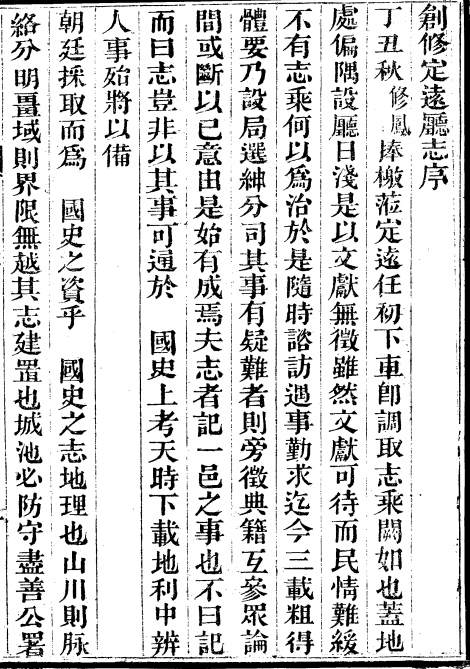 創修定遠廳志序
丁丑秋修鳳捧檄蒞定遠任初下車卽調取志乘闕如也蓋地
處偏隅設廳日淺是以文獻無徵雖然文獻可待而民情難緩
不有志乘何以爲治於是隨時諮訪遇事勤求迄今三載粗得
體要乃設局選紳分司其事有疑難者則旁徵典籍互參眾論
間或斷以己意由是始有成焉夫志者記一邑之事也不曰記
而曰志豈非以其事可通於 國史上考天時下載地利中辨
人事始將以備
朝廷採取而爲 國史之資乎 國史之志地理也山川則脉
絡分明畺域則界限無越其志建置也城池必防守盡善公署